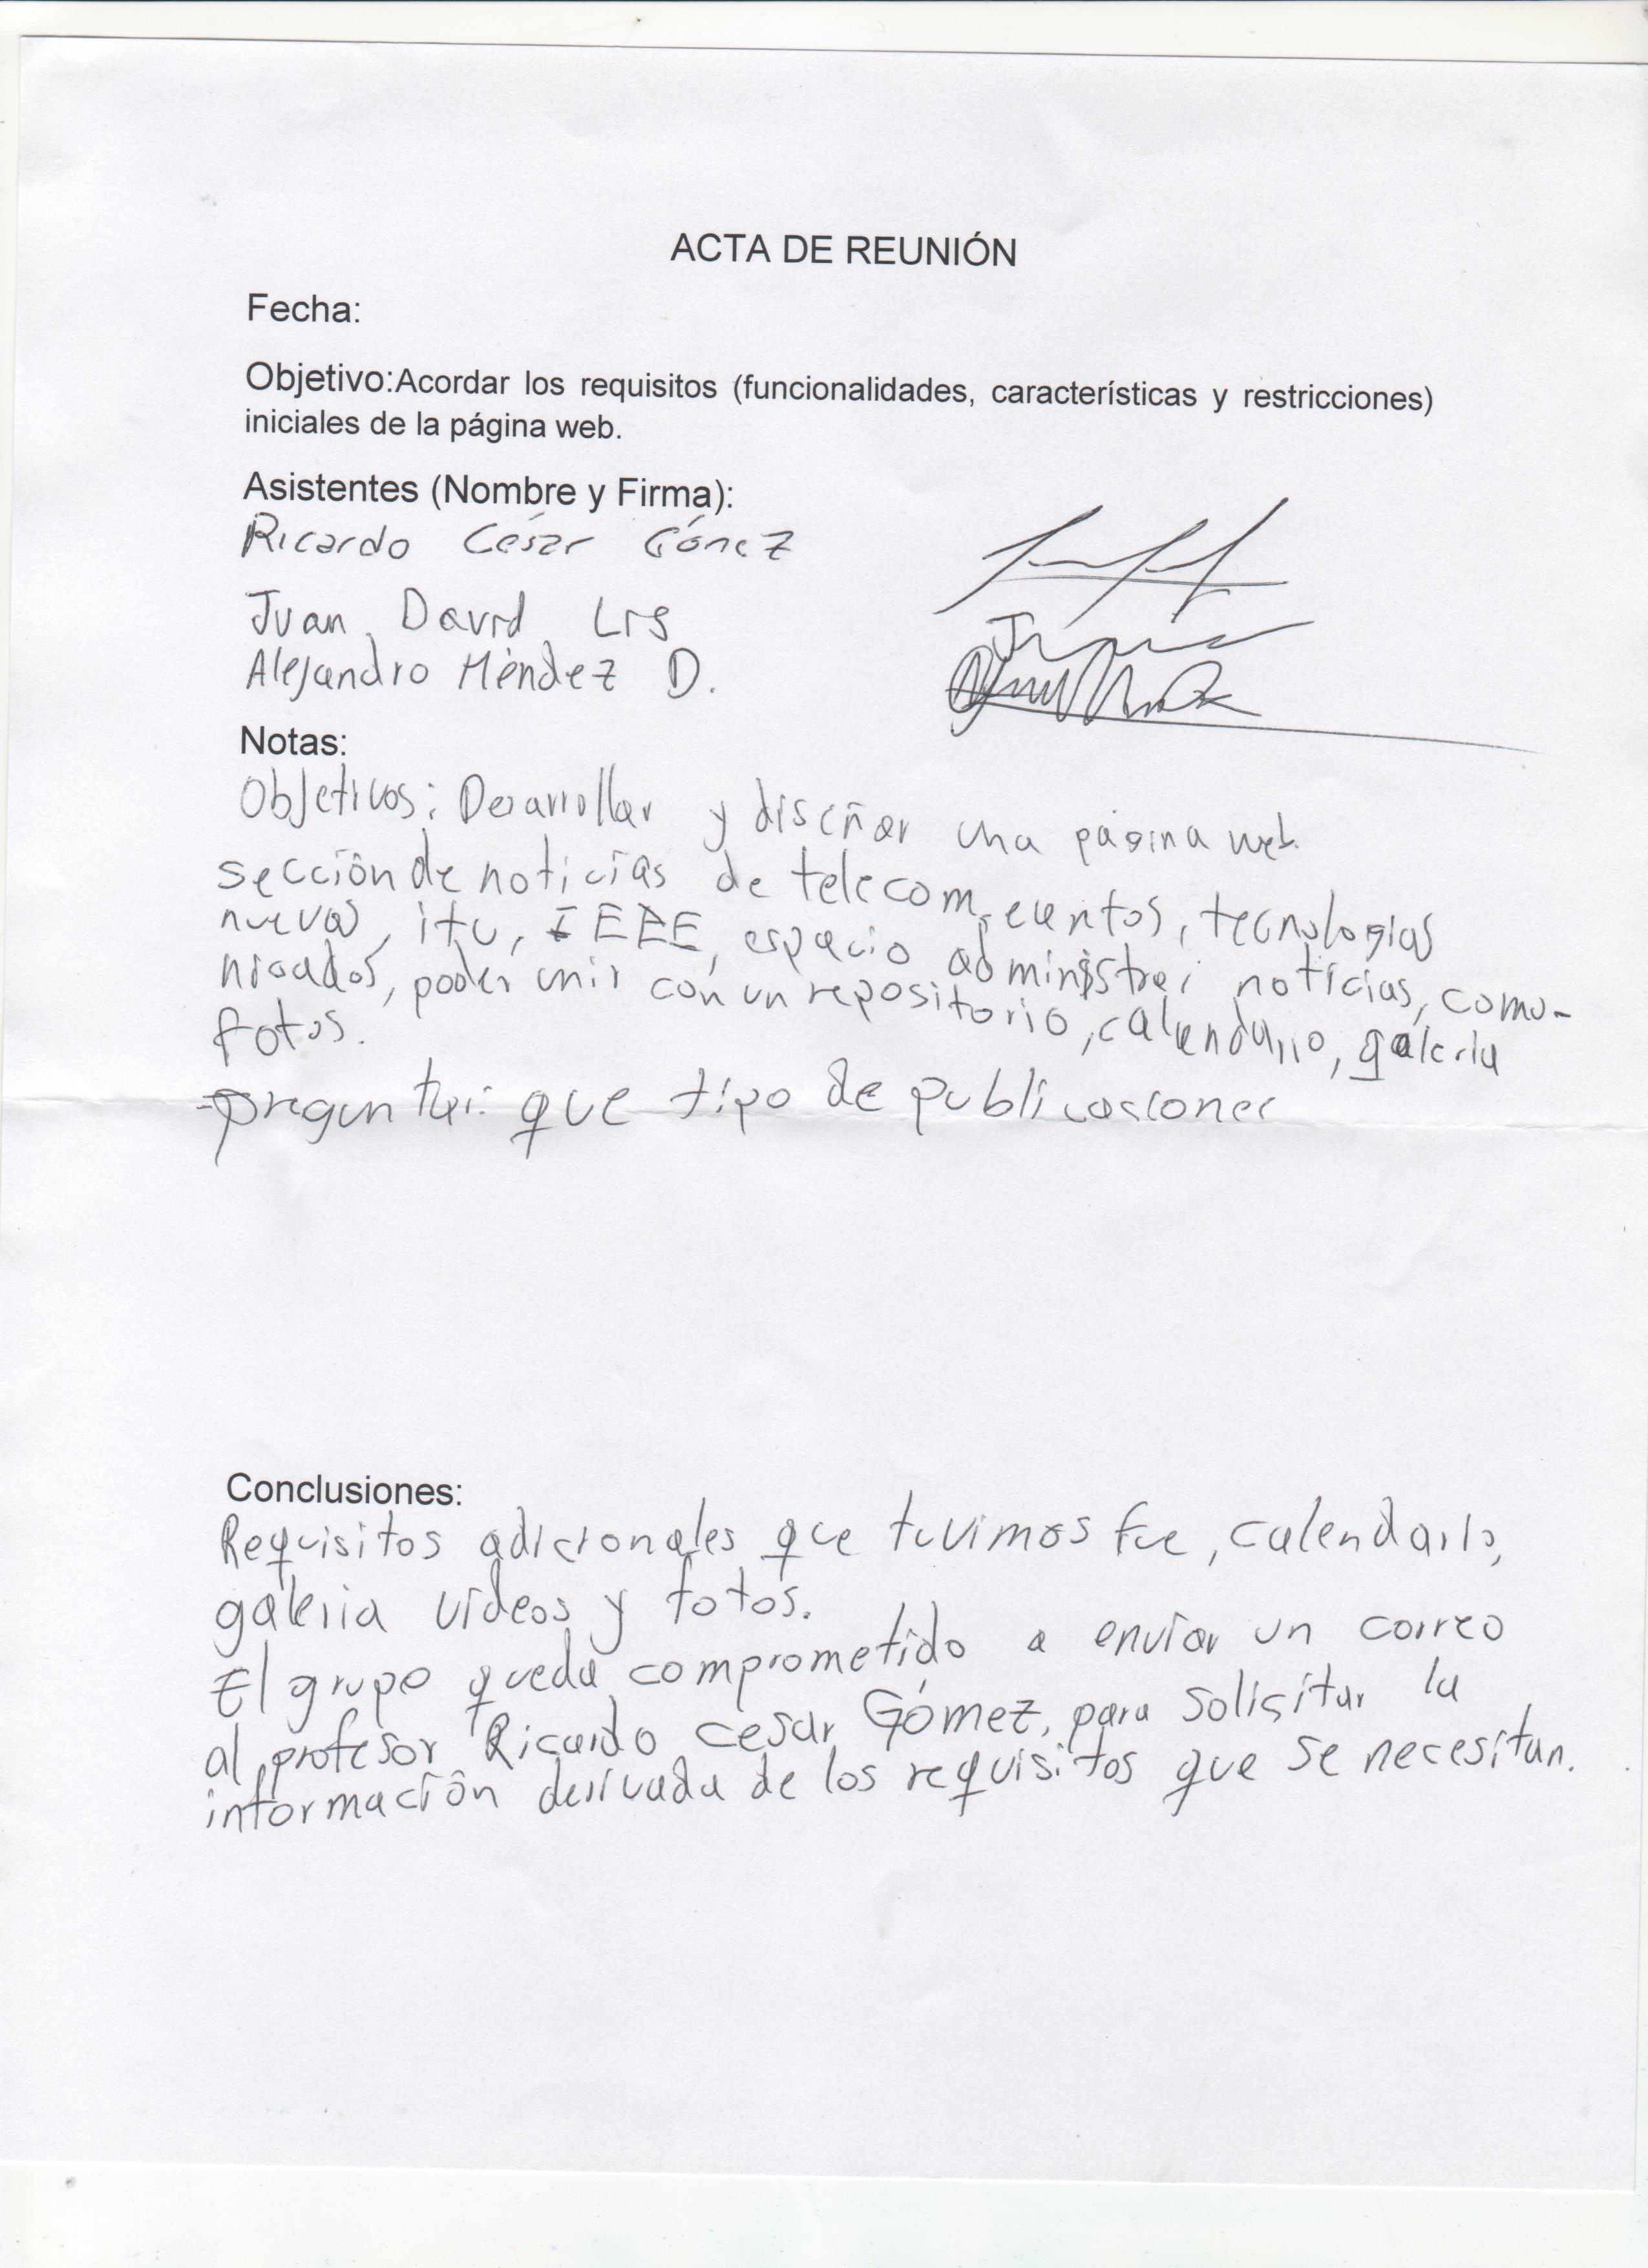 ACTA DE REUNIÓN
Fecha:
Objetivo:Acordar los requisitos (funcionalidades, características y restricciones)
iniciales de la página web.
Asistentes (Nombre y Firma):
Ricardo César Gómez
Juan David
Alejandro Méndez D.
Notas:
Objetivos: Desarrollar y diseñar una página web.
sección de noticias de telecom, eventos, tecnologias
nuevas, itu, IEEE, espacio administrar noticias, comu-
nicados, poder unir con un repositorio, calendario, galeria
fotos.
-preguntar: que tipo de publicaciones
Conclusiones:
Requisitos adicionales que tuvimos fue, calendario,
galeria videos y fotos.
El grupo queda comprometido a enviar un correo
al profesor Ricardo Cesar Gómez, para solicitar la
información derivada de los requisitos que se necesitan.